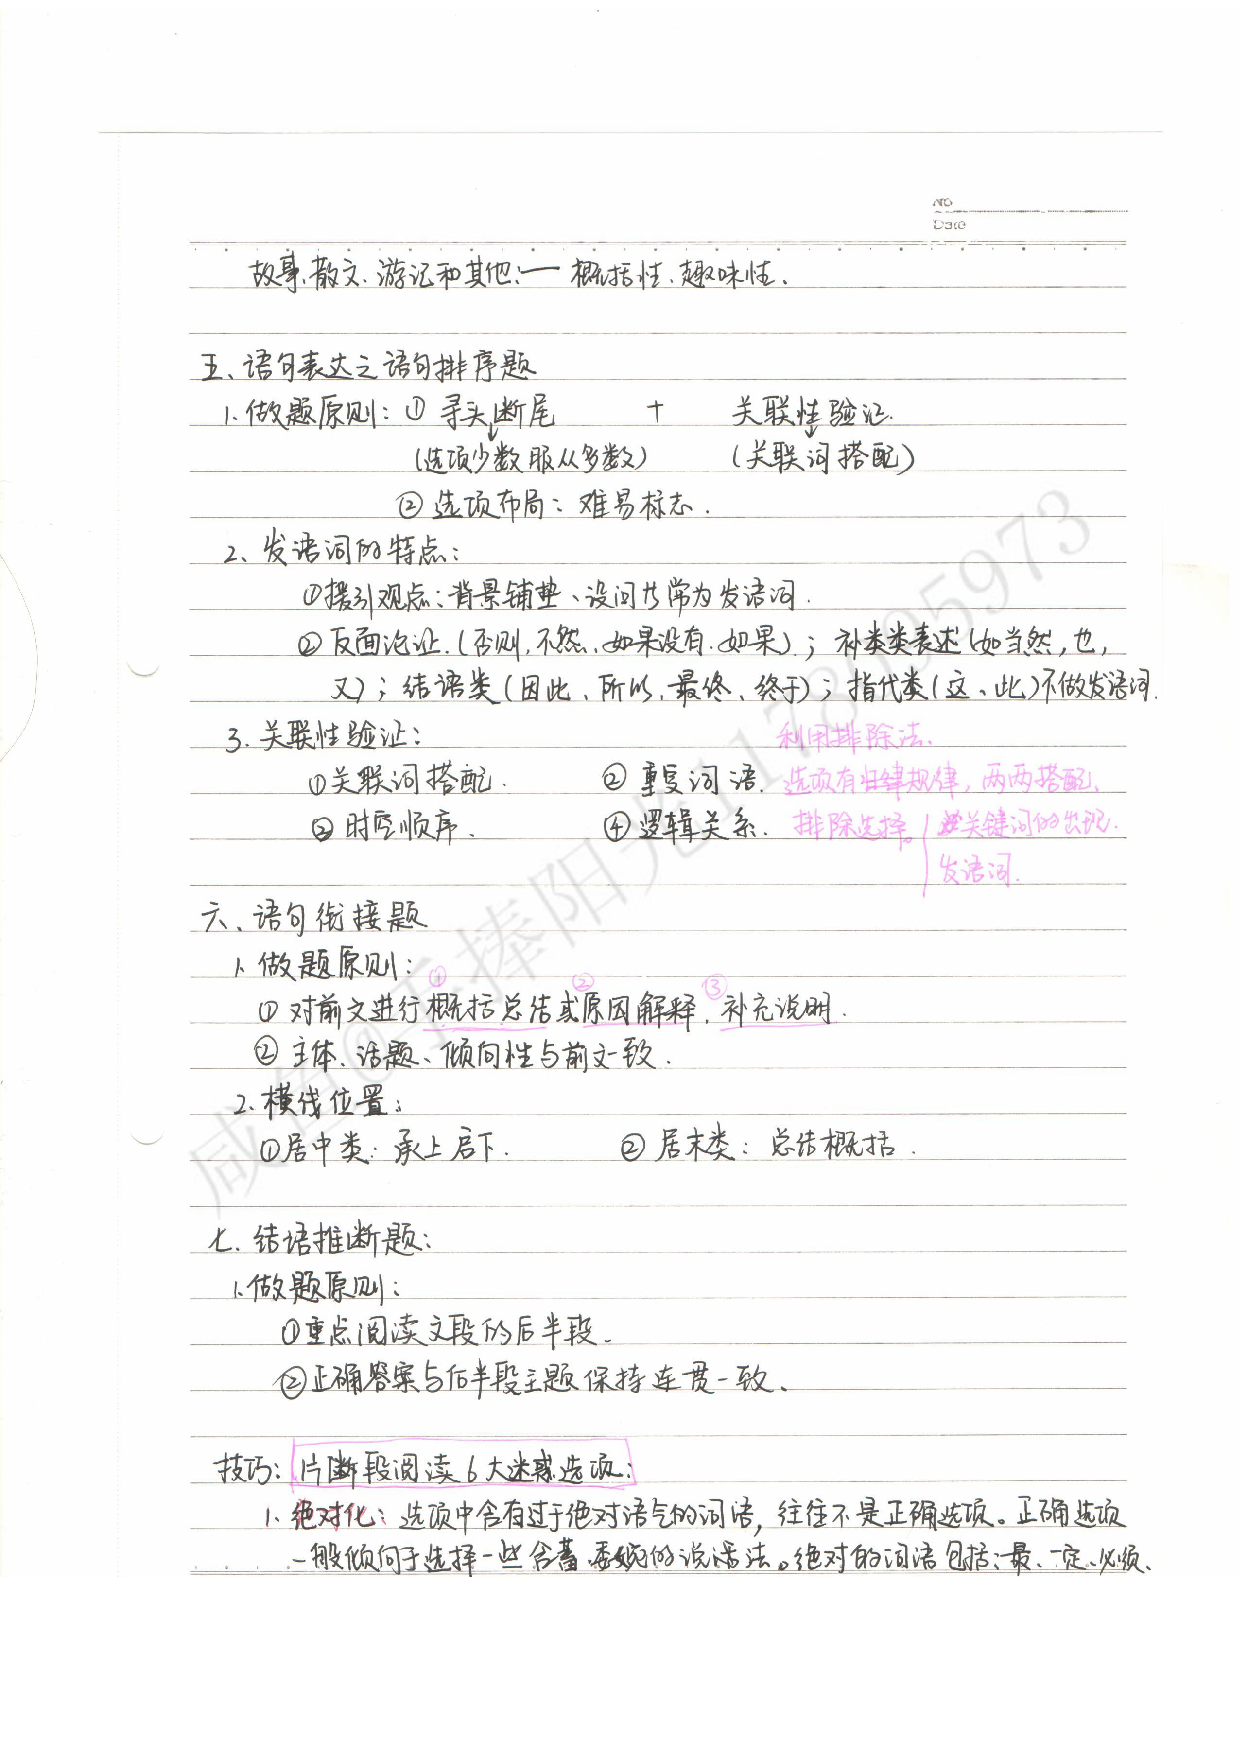 NO
Date
故事、散文、游记和其他:— 概括性、趣味性、
五、语句表达之语句排序题
1.做题原则:① 寻头断尾 + 关联性验证.
(选项少数服从多数) (关联词搭配)
② 选项布局:难易标志.
2、发语词的特点:
①援引观点:背景铺垫、设问故常为发语词.
②反面论证.(否则,不然、如果没有.如果);补类类表述(如当然,也,
又);结语类(因此、所以,最终、终于);指代类(这、此)不做发语词.
3.关联性验证: 利用排除法.
①关联词搭配. ② 重复词语. 选项有归律规律,两两搭配,
③ 时空顺序. ④逻辑关系. 排除选择。 关键词的出现.
发语词.
六、语句衔接题
1.做题原则:
① ② ③
① 对前文进行概括总结或原因解释,补充说明.
② 主体、话题、倾向性与前文一致.
2.横线位置:
①居中类:承上启下. ② 居末类:总结概括.
七.结语推断题:
1.做题原则:
①重点阅读文段的后半段.
②正确答案与后半段主题保持连贯一致、
技巧:片断段阅读6大迷惑选项:
1.绝对化:选项中含有过于绝对语气的词语,往往不是正确选项。正确选项
一般倾向于选择一些含蓄、委婉的说法。绝对的词语包括:最、一定、必须、
咸鱼@手捧阳光1178095973